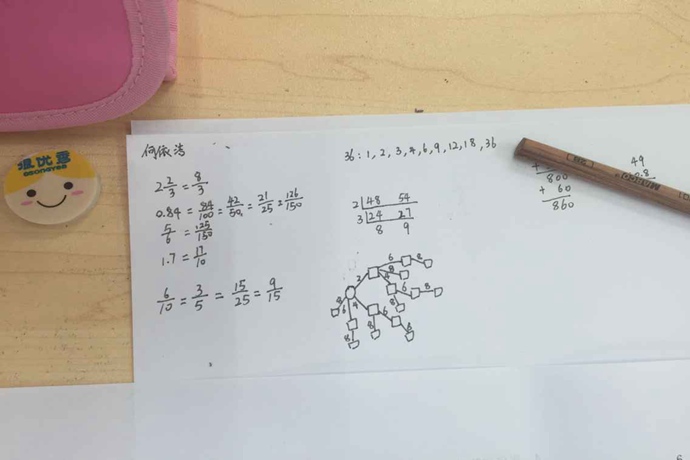 何依浩
2 2/3 = 8/3
0.84 = 84/100 = 42/50 = 21/25 = 126/150
5/6 = 125/150
1.7 = 17/10
6/10 = 3/5 = 15/25 = 9/15
36: 1, 2, 3, 4, 6, 9, 12, 18, 36
2 48 54
3 24 27
8 9
2 6 8
8
4 6 8
8
8 6 4
6 8
8 8
+
800
+ 60
860
49